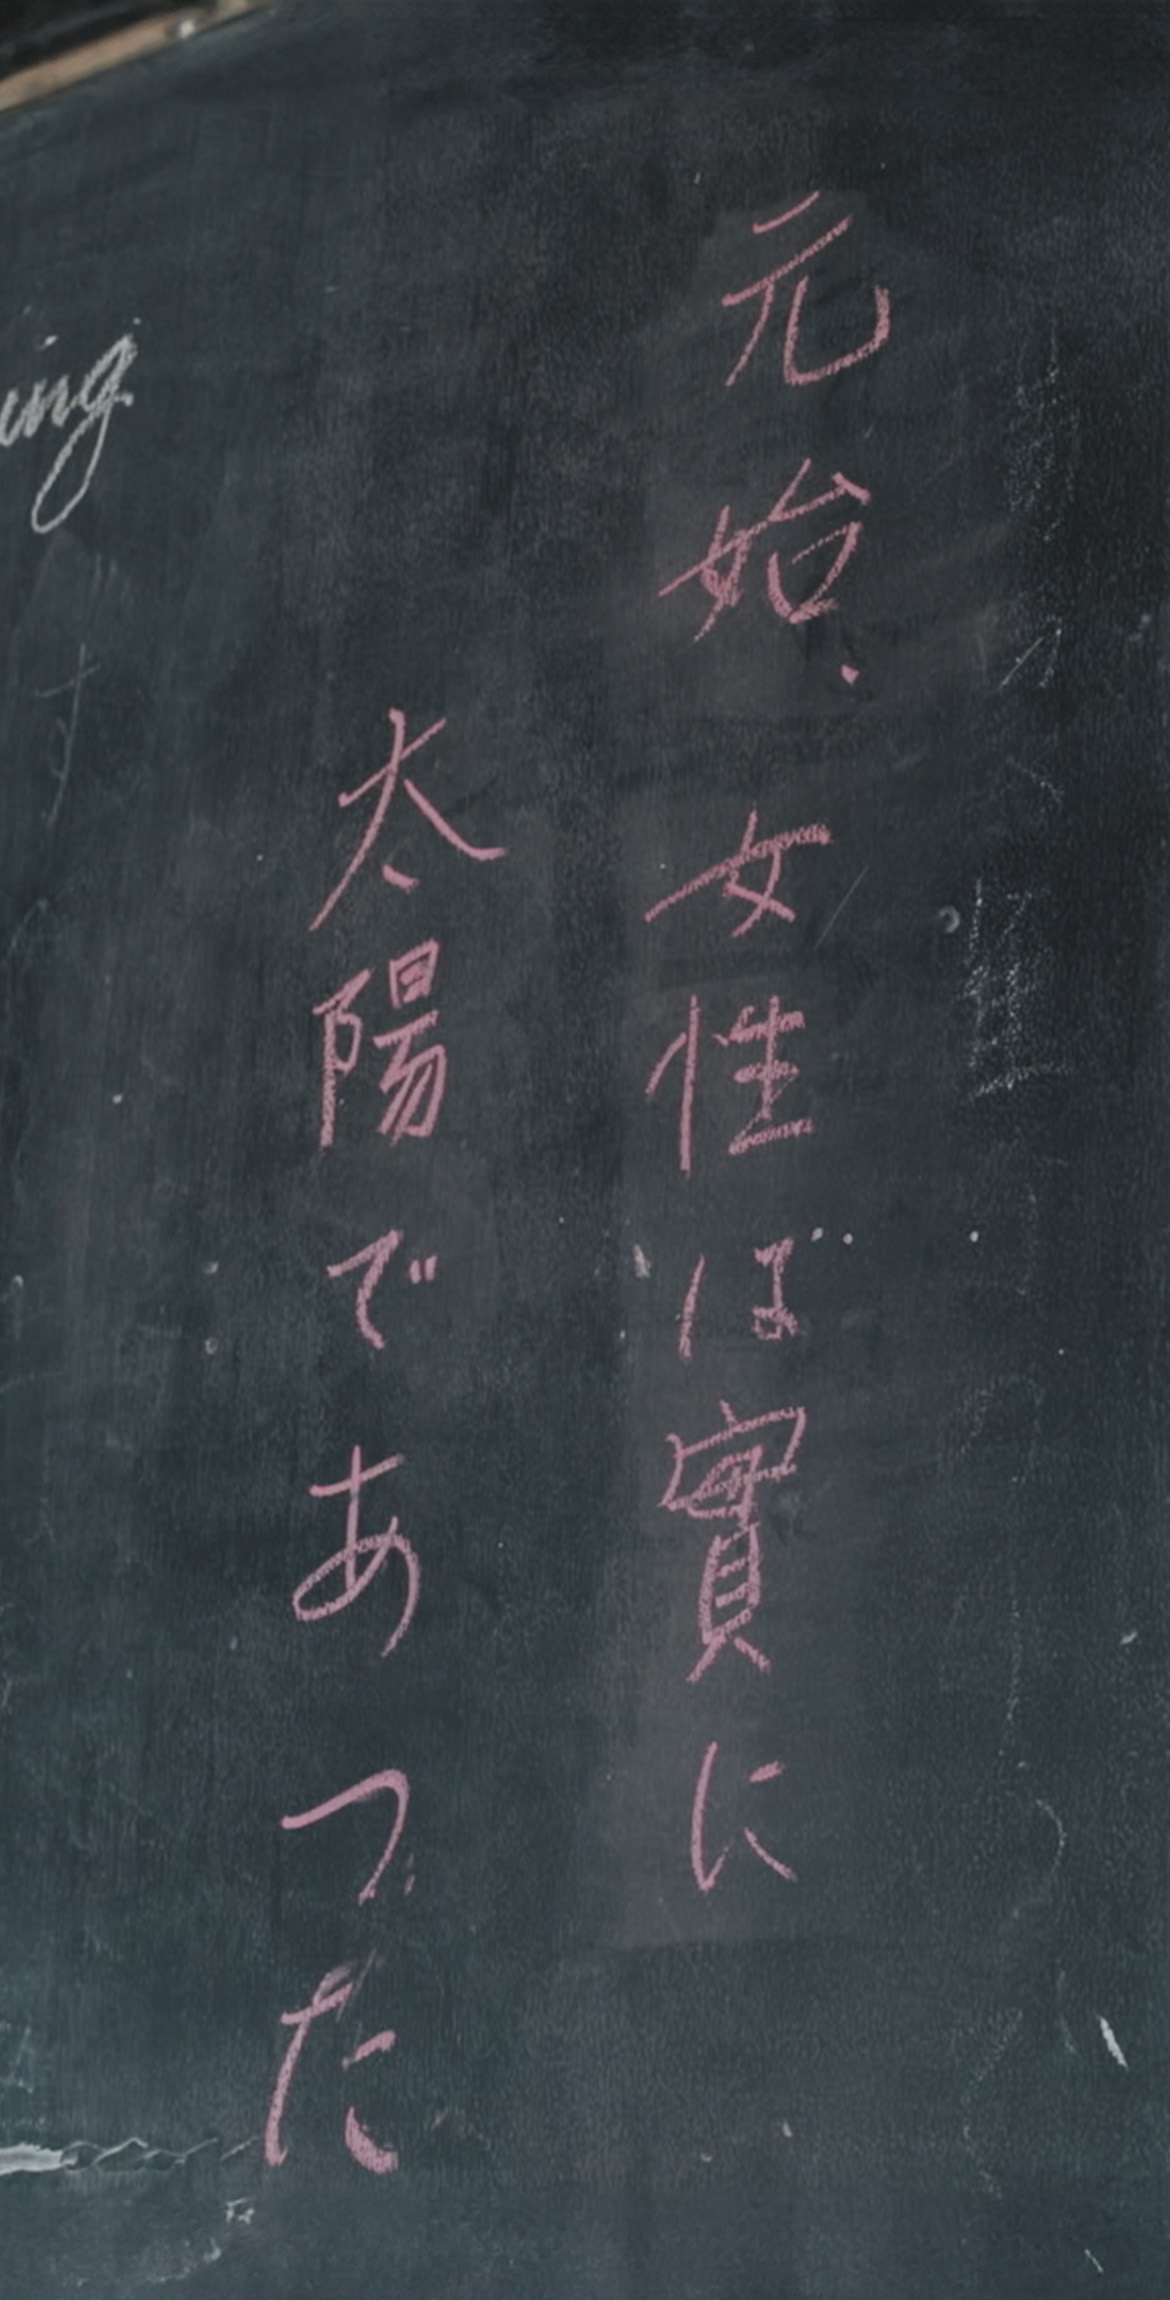 元始、
女性は實に
太陽であつた
ing